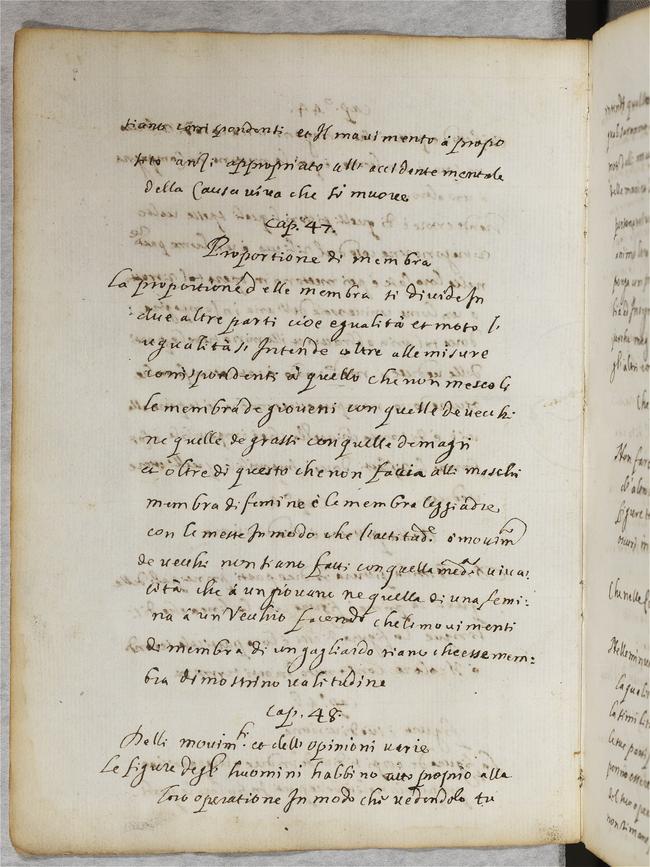 siano corrispondenti et Il mavimento à propo
sito anzi appropriato alli accidente mentale
della Causa viva che si muove
Cap. 47.
Proportione di membra
La proportione delle membra si divide In
due altre parti cioe egualità et moto l'
ugualità si Intende oltre alle misure
corrispondenti à quello che non mescoli
le membra de gioveni con quelle de vecchi
ne quelle de grassi con quelle de magri
et oltre di questo che non faccia alli maschi
membra di femine è le membra leggiadre
con le mette In modo che l'attitudᵉ o movimᵗⁱ
de vecchi non siano fatti con quella medᵐᵃ viva:
cità che à un giovane ne quella di una femi:
na à un Vecchio facendo che li movimenti
di membra di un gagliardo siano che esse mem:
bra dimostrino valitudine
Cap. 48.
Delli movimᵗⁱ et delle opinioni varie
Le figure degli huomini habbino atto proprio alla
loro operatione In modo che vedendolo tu